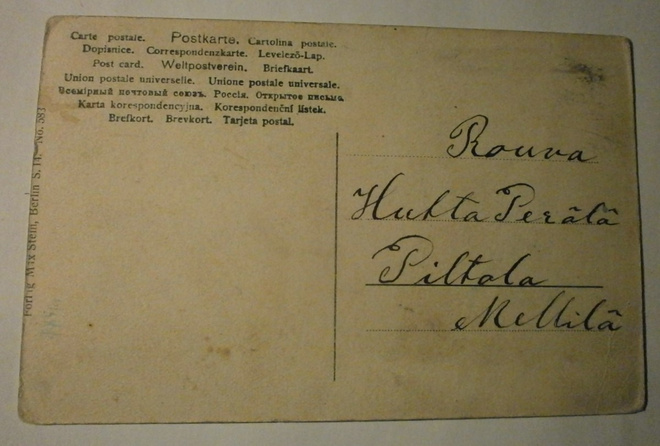 Carte postale. Postkarte. Cartolina postale.
Dopisnice. Correspondenzkarte. Levelező-Lap.
Post card. Weltpostverein. Briefkaart.
Union postale universelle. Unione postale universale.
Всемірный почтовый союзъ. Россія. Открытое письмо.
Karta korespondencyjna. Korespondenční lístek.
Brefkort. Brevkort. Tarjeta postal.
Max Stein, Berlin S. 14. No. 583
Rouva
Huhta Perälä
Piltola
Mellilä